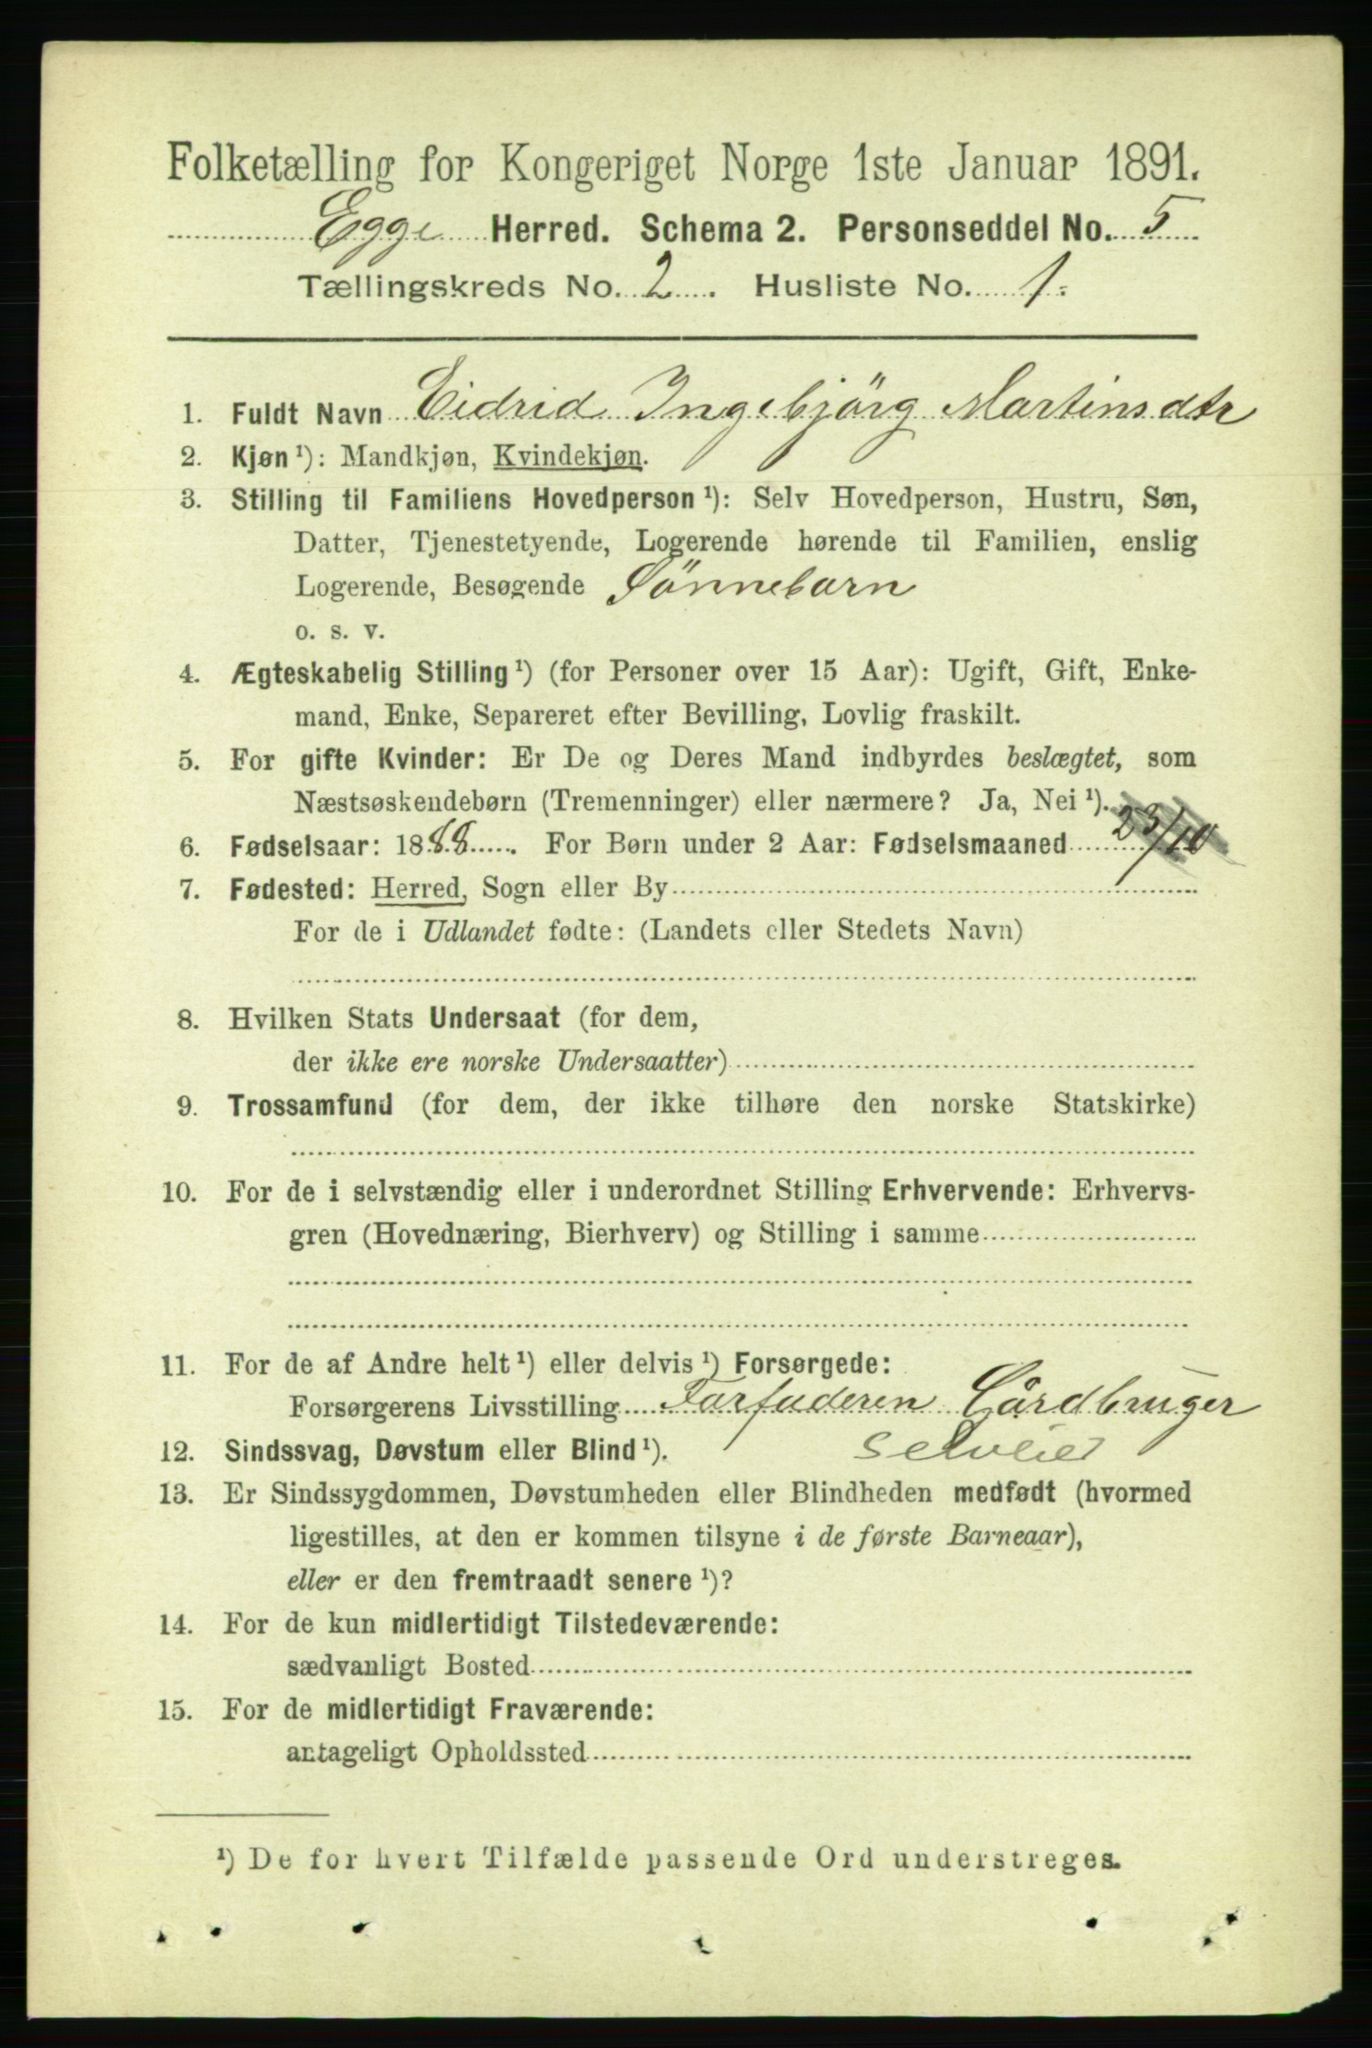 Folketælling for Kongeriget Norge 1ste Januar 1891.
Egge Herred. Schema 2. Personseddel No. 5
Tællingskreds No. 2. Husliste No. 1.
1. Fuldt Navn Eidrid Ingebjörg Martinsdtr
2. Kjøn¹): Mandkjøn, Kvindekjøn.
3. Stilling til Familiens Hovedperson¹): Selv Hovedperson, Hustru, Søn,
Datter, Tjenestetyende, Logerende hørende til Familien, enslig
Logerende, Besøgende Sönnebarn
o. s. v.
4. Ægteskabelig Stilling¹) (for Personer over 15 Aar): Ugift, Gift, Enke-
mand, Enke, Separeret efter Bevilling, Lovlig fraskilt.
5. For gifte Kvinder: Er De og Deres Mand indbyrdes beslægtet, som
Næstsøskendebørn (Tremenninger) eller nærmere? Ja, Nei¹).
6. Fødselsaar: 1888. For Børn under 2 Aar: Fødselsmaaned 23/10
7. Fødested: Herred, Sogn eller By
For de i Udlandet fødte: (Landets eller Stedets Navn)
8. Hvilken Stats Undersaat (for dem,
der ikke ere norske Undersaatter)
9. Trossamfund (for dem, der ikke tilhøre den norske Statskirke)
10. For de i selvstændig eller i underordnet Stilling Erhvervende: Erhvervs-
gren (Hovednæring, Bierhverv) og Stilling i samme
11. For de af Andre helt¹) eller delvis¹) Forsørgede:
Forsørgerens Livsstilling Farfaderen Gårdbruger
12. Sindssvag, Døvstum eller Blind¹). selveier
13. Er Sindssygdommen, Døvstumheden eller Blindheden medfødt (hvormed
ligestilles, at den er kommen tilsyne i de første Barneaar),
eller er den fremtraadt senere¹)?
14. For de kun midlertidigt Tilstedeværende:
sædvanligt Bosted
15. For de midlertidigt Fraværende:
antageligt Opholdssted
¹) De for hvert Tilfælde passende Ord understreges.